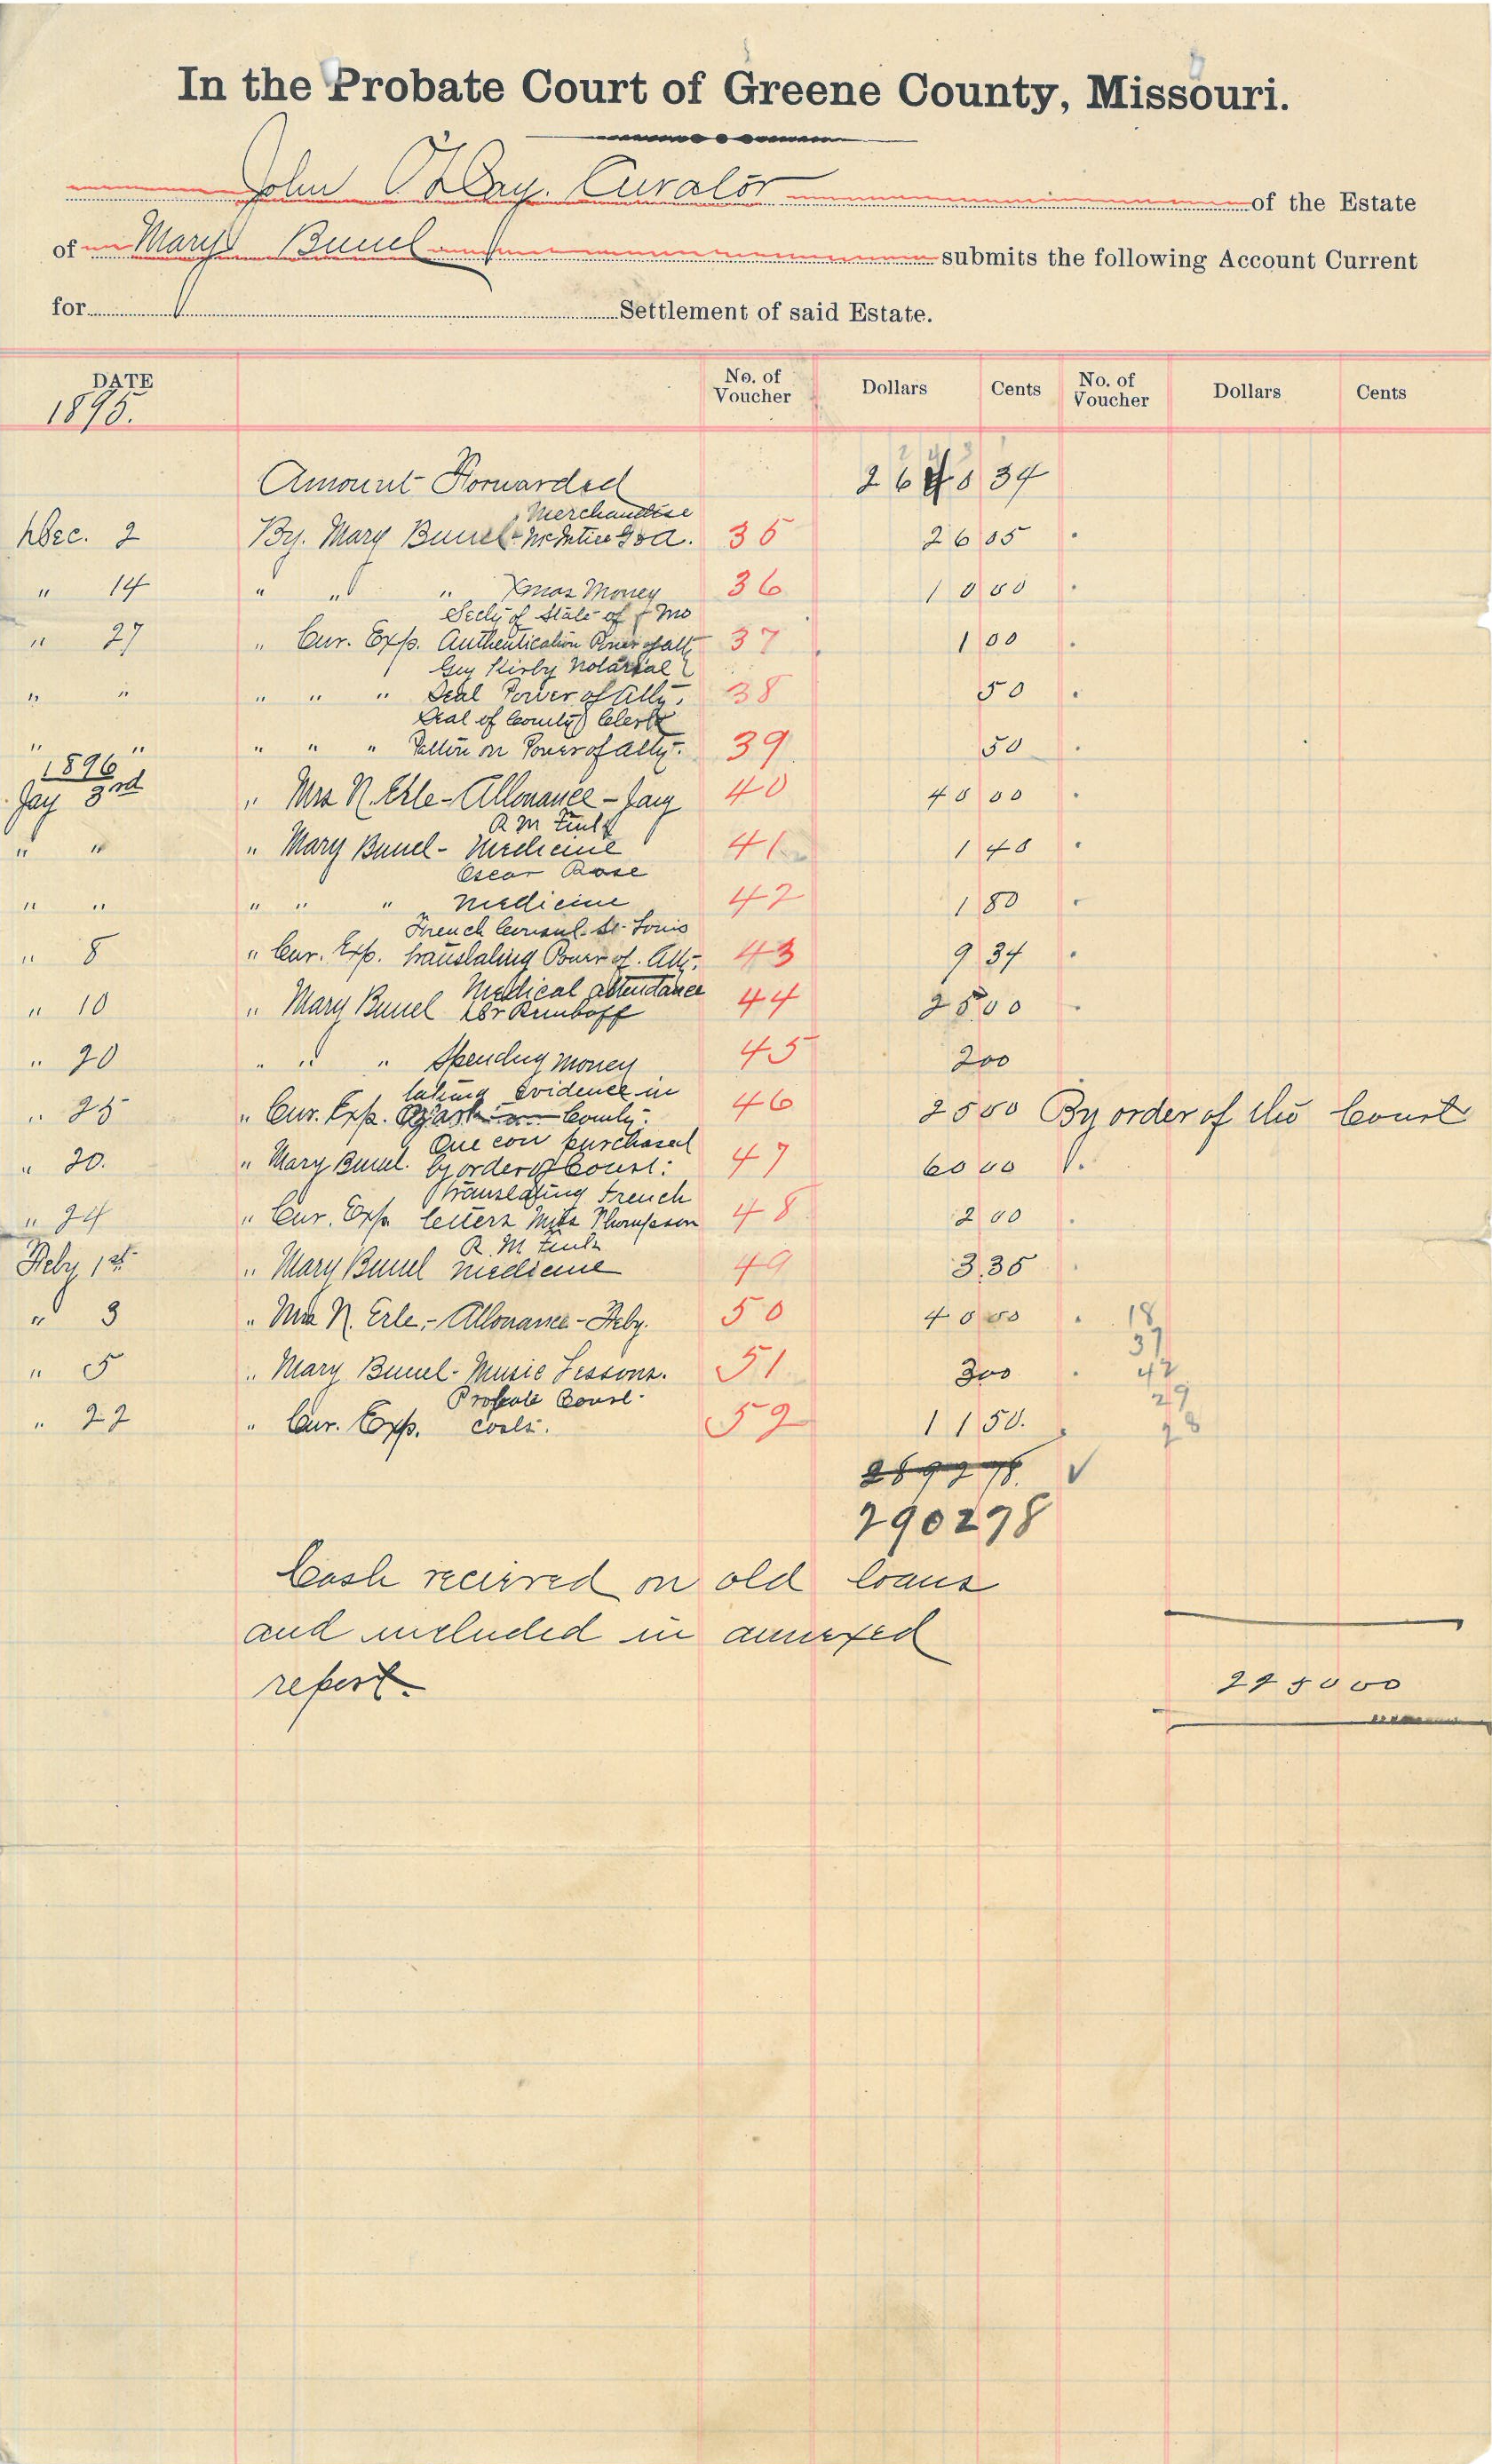 In the Probate Court of Greene County, Missouri.
John O'Day. Curator of the Estate
of Mary Bunel submits the following Account Current
for Settlement of said Estate.
DATE No. of Voucher Dollars Cents No. of Voucher Dollars Cents
1895.
Amount Forwarded 26 0 34
Merchandise
Dec. 2 By. Mary Bunel 35 26 05
" 14 " " " Xmas Money 36 10 00
Secty of State of Mo
" 27 " Cur. Exp. Authentication Power of atty 37 1 00
Guy Kirby Notarial
" " " " " Seal Power of Atty. 38 50
Seal of County Clerk
" " " " " on Power of Atty. 39 50
1896
Jay 3rd " Mrs N. Erle - Allowance - Jay 40 40 00
R M
" " " Mary Bunel - Medicine 41 1 40
Oscar Rose
" " " " " Medicine 42 1 80
French Consul. St. Louis
" 8 " Cur. Exp. translating Power of. Atty. 43 9 34
Medical attendance
" 10 " Mary Bunel Dr 44 25 00
" 20 " " " Spending money 45 2 00
taking evidence in
" 25 " Cur. Exp. Ozark County. 46 25 00 By order of the Court
One cow purchased
" 20. " Mary Bunel. by order of Court: 47 60 00
translating French
" 24 " Cur. Exp. letters Miss Thompson 48 2 00
R. M
Feby 1st " Mary Bunel Medicine 49 3.35
" 3 " Mrs N. Erle,- Allowance - Feby. 50 40 00 18
37
" 5 " Mary Bunel - Music Lessons. 51 3 00 42
Probate Court 29
" 22 " Cur. Exp. costs. 52 11 50. 28
2892 78. ✓
2902 78
Cash recieved on old loans
and included in annexed
report. 2250 00